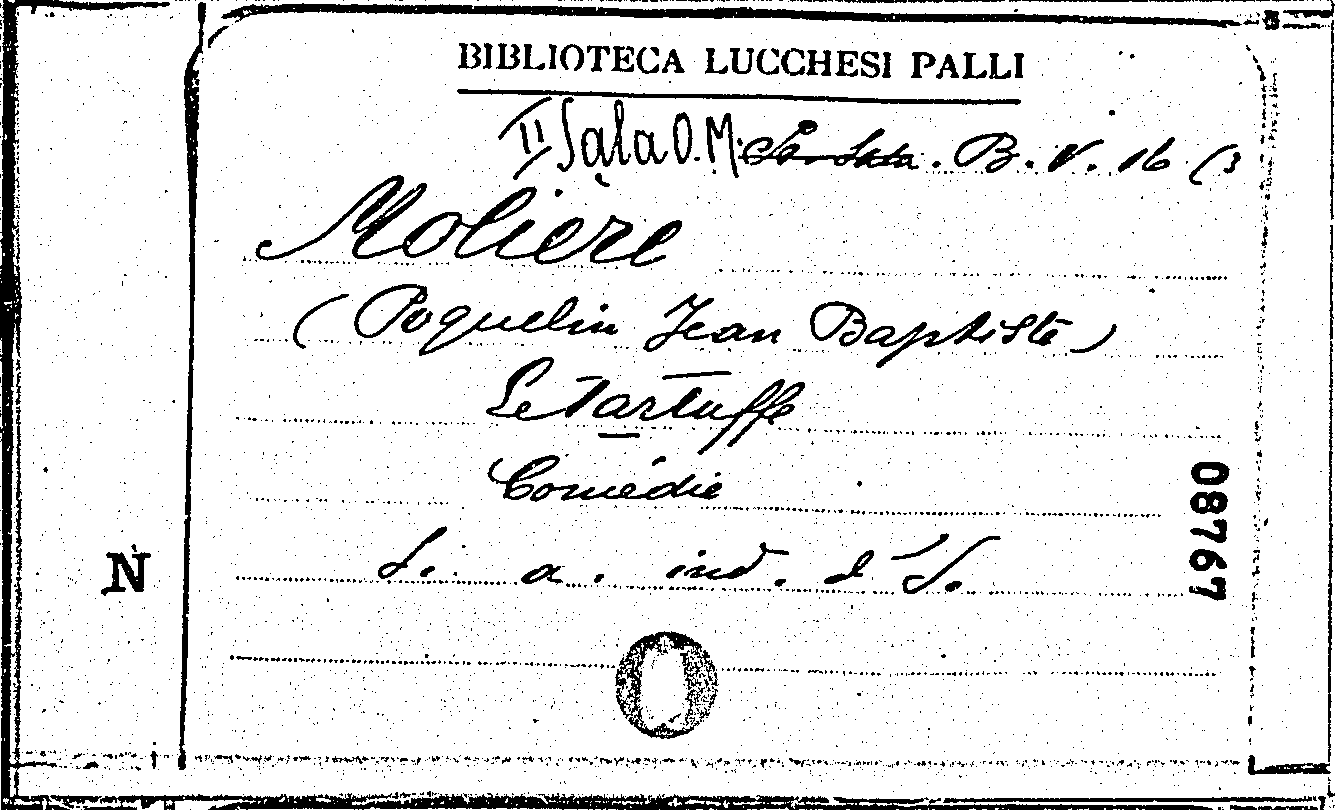 BIBLIOTECA LUCCHESI PALLI
II Sala O.M. B. V. 16 (3
Molière
(Poquelin Jean Baptiste)
Le Tartuffe
Comédie
S. a. ind. d S.
08767
N